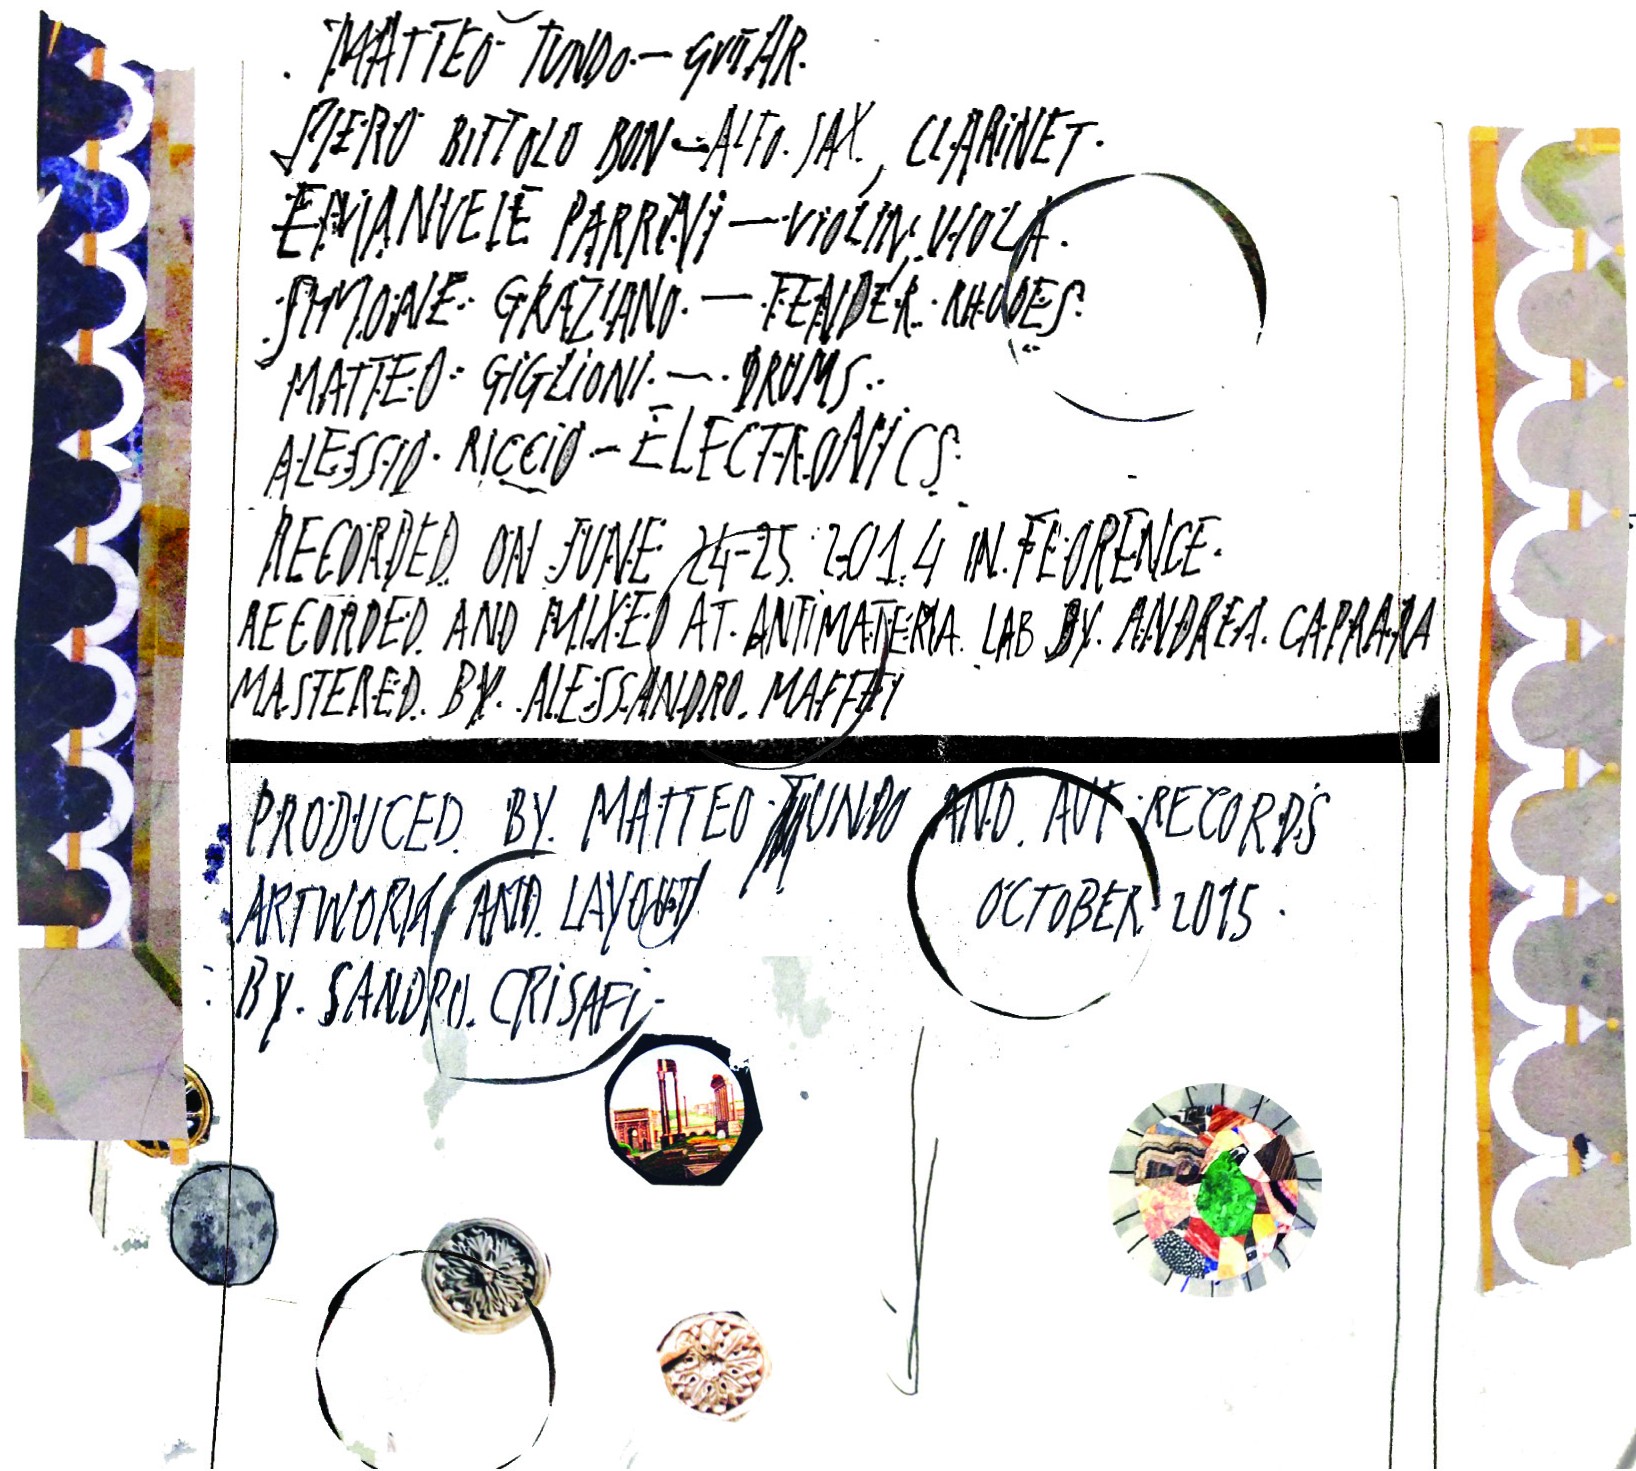 MATTEO TUNDO — GUITAR.
PIERO BITTOLO BON — ALTO. SAX, CLARINET.
EMANUELE PARRINI — VIOLIN, VIOLA.
SIMONE GRAZIANO. — FENDER. RHODES.
MATTEO GIGLIONI. — DRUMS.
ALESSIO. RICCIO — ELECTRONICS.
RECORDED ON JUNE 24-25 2014 IN. FLORENCE.
RECORDED. AND MIXED AT. ANTIMATERIA. LAB BY. ANDREA. CAPRARA
MASTERED. BY. ALESSANDRO. MAFFEI
PRODUCED. BY. MATTEO TUNDO AND. AUT RECORDS
ARTWORK AND. LAYOUT OCTOBER 2015.
BY. SANDRO. CRISAFI.